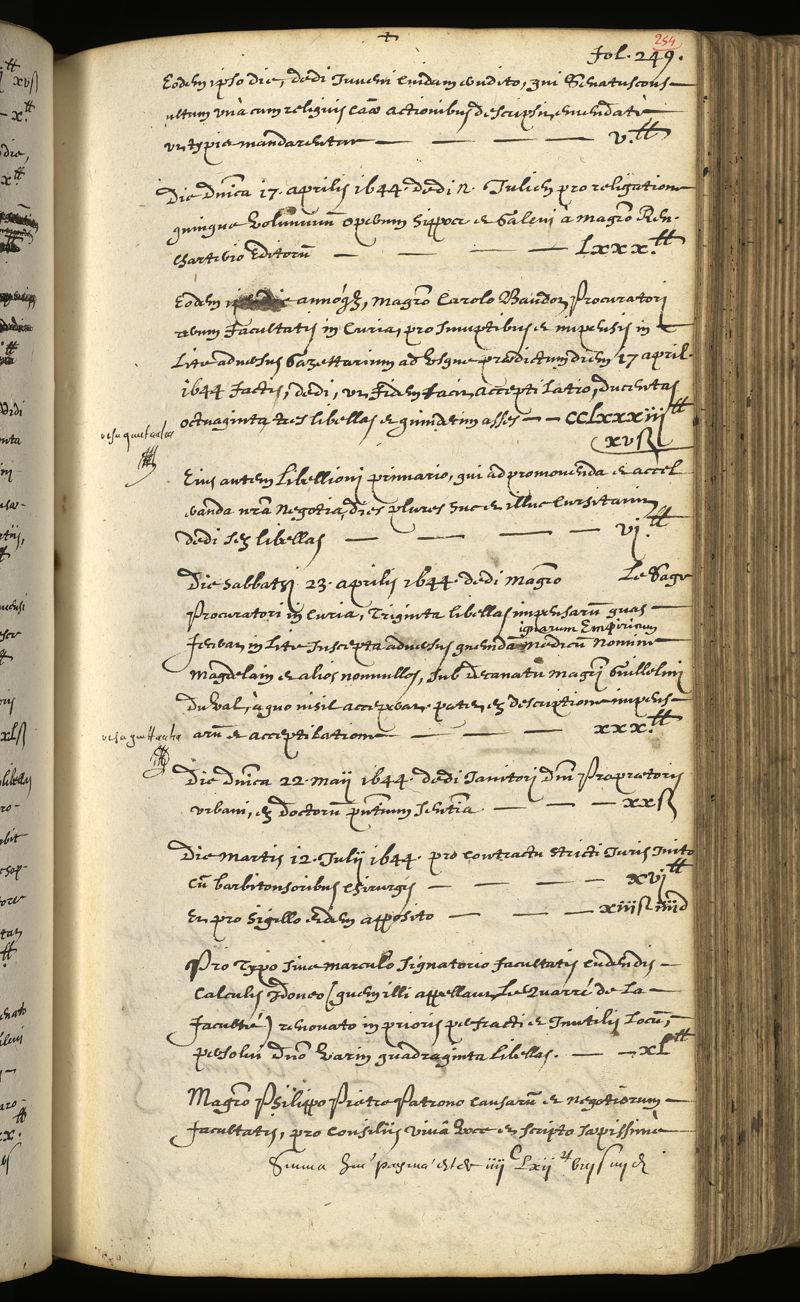 254
Fol. 249.
Eodem ipso die, dedi Juveni cuidam erudito, qui Senatuscons-
ultum unà cum reliquis actionibus descripsit, emendatè
ut typis mandarentur — v.tt
Die Dnica 17. aprilis 1644. dedi pro religatione
quinque Voluminum operum Hippocr et Galeni à Magro Ren.
Chartrio Editorum — Lxxx.tt
Eodem die annóq3, Magro Carolo Baudon Procuratori
rerum Facultatis in Curia, pro sumptibus et impensis in
Lite adversus Gazettarium ad usque prædictum diem 17 april.
1644 factis, dedi, ut fidem facit accepti latio, ducentas
octuaginta tres libellas et quindecim asses — ccLxxxiii tt
xvß
Eius autem Libellioni primario, qui ad promovenda et accel
eranda nra Negotia, dies plures huc et illuc cursitavit,
dedi sex libellas — vi.tt
Die Sabbathi 23. aprilis 1644. dedi Magro Le Sage
Procuratori in Curia, Triginta libellas impensarum quas
ignarum Empiricum
fecerat in Lite Suscepta adversus quendam Medicum Nomine
Magdelain et alios nonnullos, sub Decanatu Magri Guillelmi
Du Val, à quo nihil acceperat. patet, ex descriptione impens-
arum et acceptilatione — xxx.tt
Die Dnica 22. Maii 1644. dedi Janitori Dni Proprætoris
urbani, ex doctorum sentia — xxß
Die Martis 12. Julii 1644. pro contractu stricti Juris Inito
cu barbitonsoribus chirurgis — xvj tt
Et pro sigillo eidem apposito — xiiiß iiiid
Pro Typo sive marculo signatorio Facultatis cudendis
calculis Idoneo (quem illi appellant, Le Quarré de La
faculté) renovato in prioris perfracti et Inutilis Locum,
persolui Dno Varin quadraginta libellas. — xl tt
Magro Philippo Pietre Patrono causarum et negotiorum
Facultatis, pro consiliis vivâ voce et scripto sæpissime
Summa pagina iiii C Lxii tt